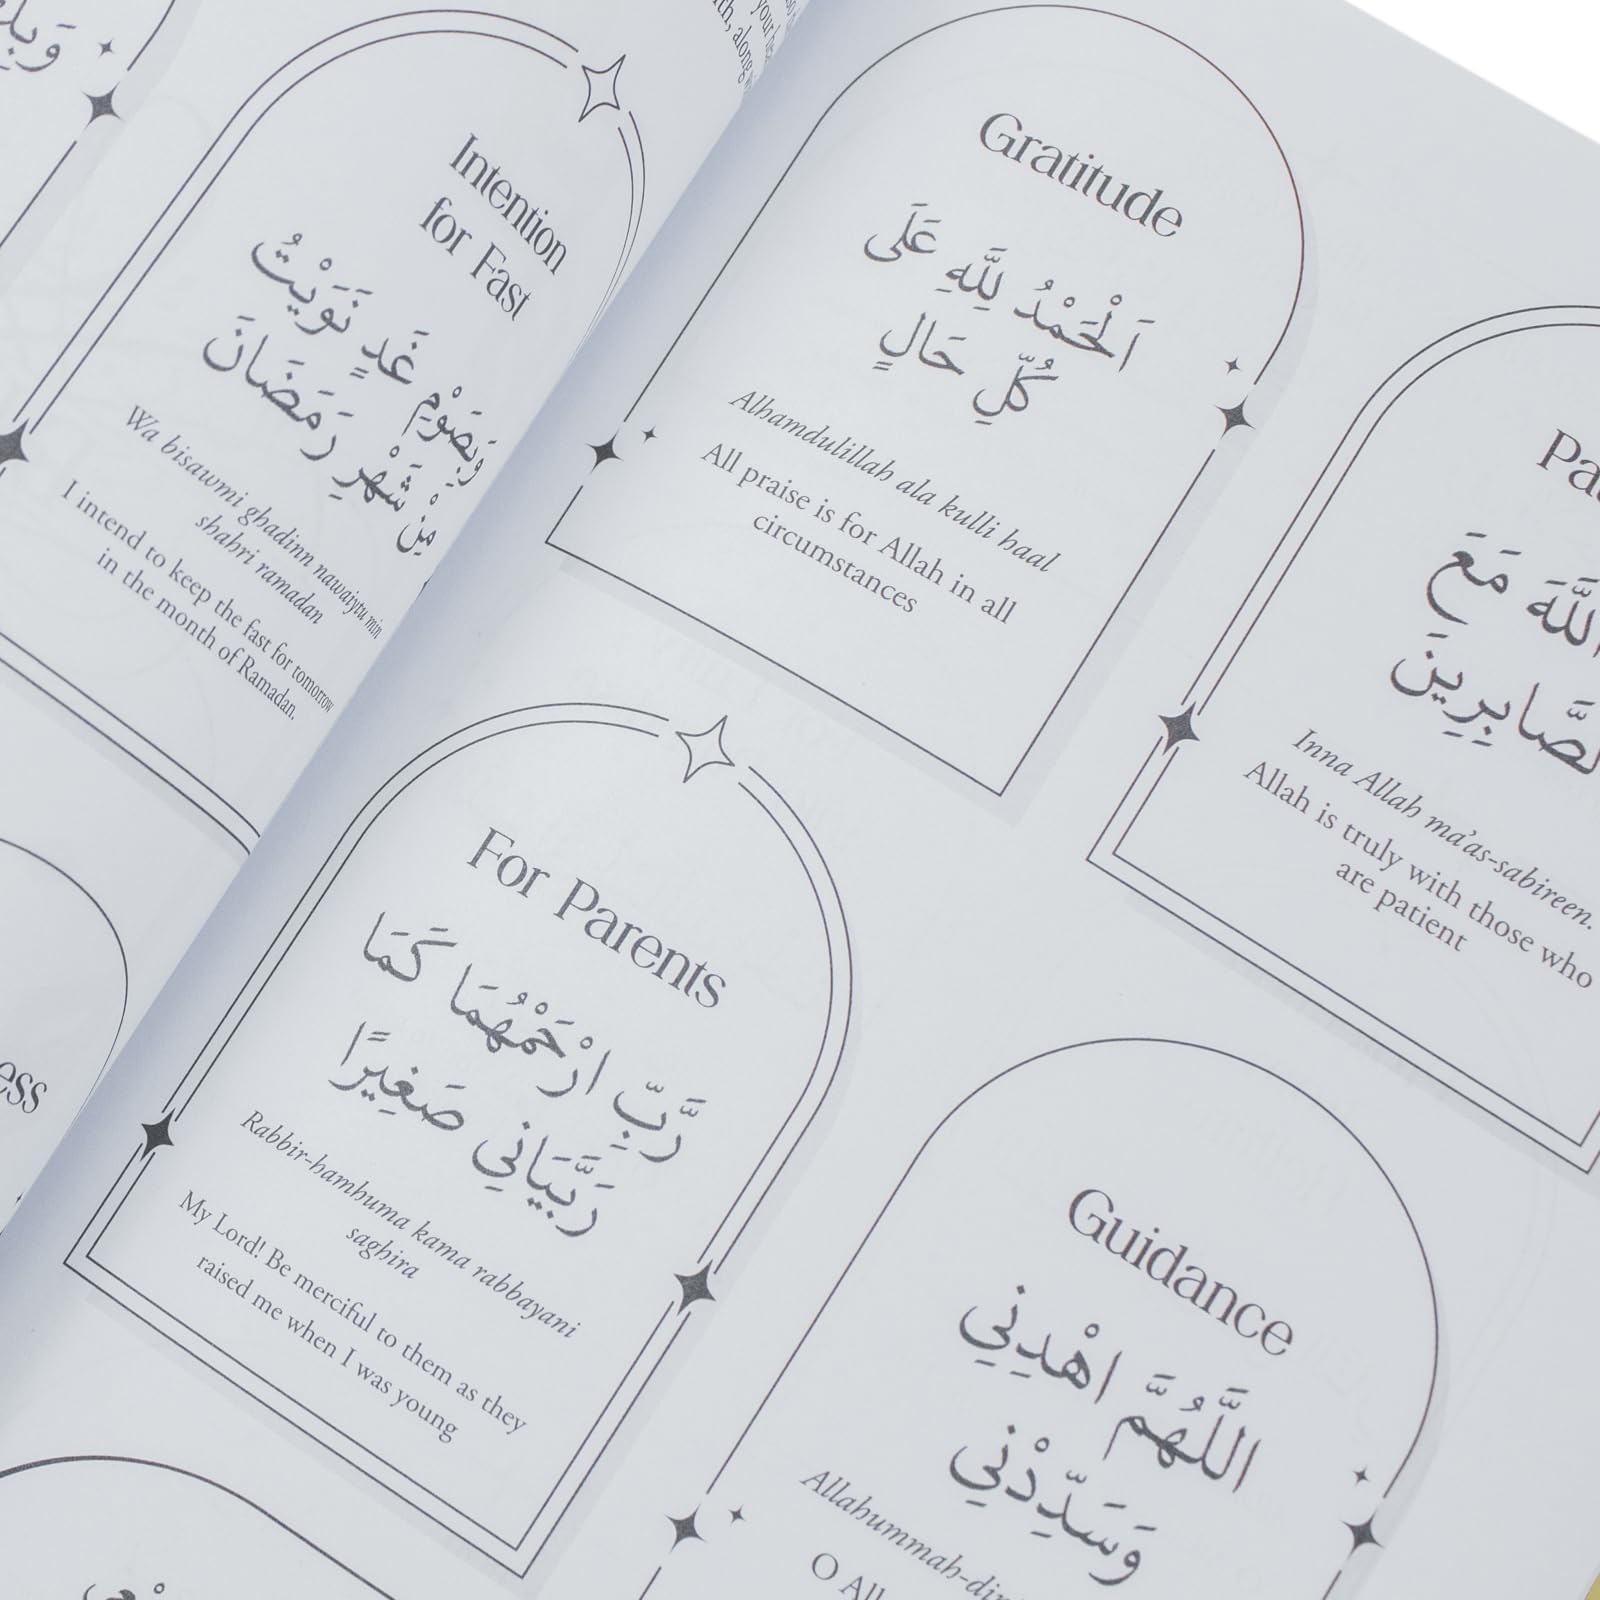 Intention
for Fast
وَبِصَوْمِ غَدٍ نَوَيْتُ
مِنْ شَهْرِ رَمَضَانَ
Wa bisawmi ghadinn nawaiytu min
shahri ramadan
I intend to keep the fast for tomorrow
in the month of Ramadan.
Gratitude
اَلْحَمْدُ لِلَّهِ عَلَى
كُلِّ حَالٍ
Alhamdulillah ala kulli haal
All praise is for Allah in all
circumstances
اللَّهَ مَعَ
الصَّابِرِينَ
Inna Allah ma'as-sabireen.
Allah is truly with those who
are patient
For Parents
رَّبِّ ارْحَمْهُمَا كَمَا
رَبَّيَانِي صَغِيرًا
Rabbir-hamhuma kama rabbayani
saghira
My Lord! Be merciful to them as they
raised me when I was young
Guidance
اللَّهُمَّ اهْدِنِي
وَسَدِّدْنِي